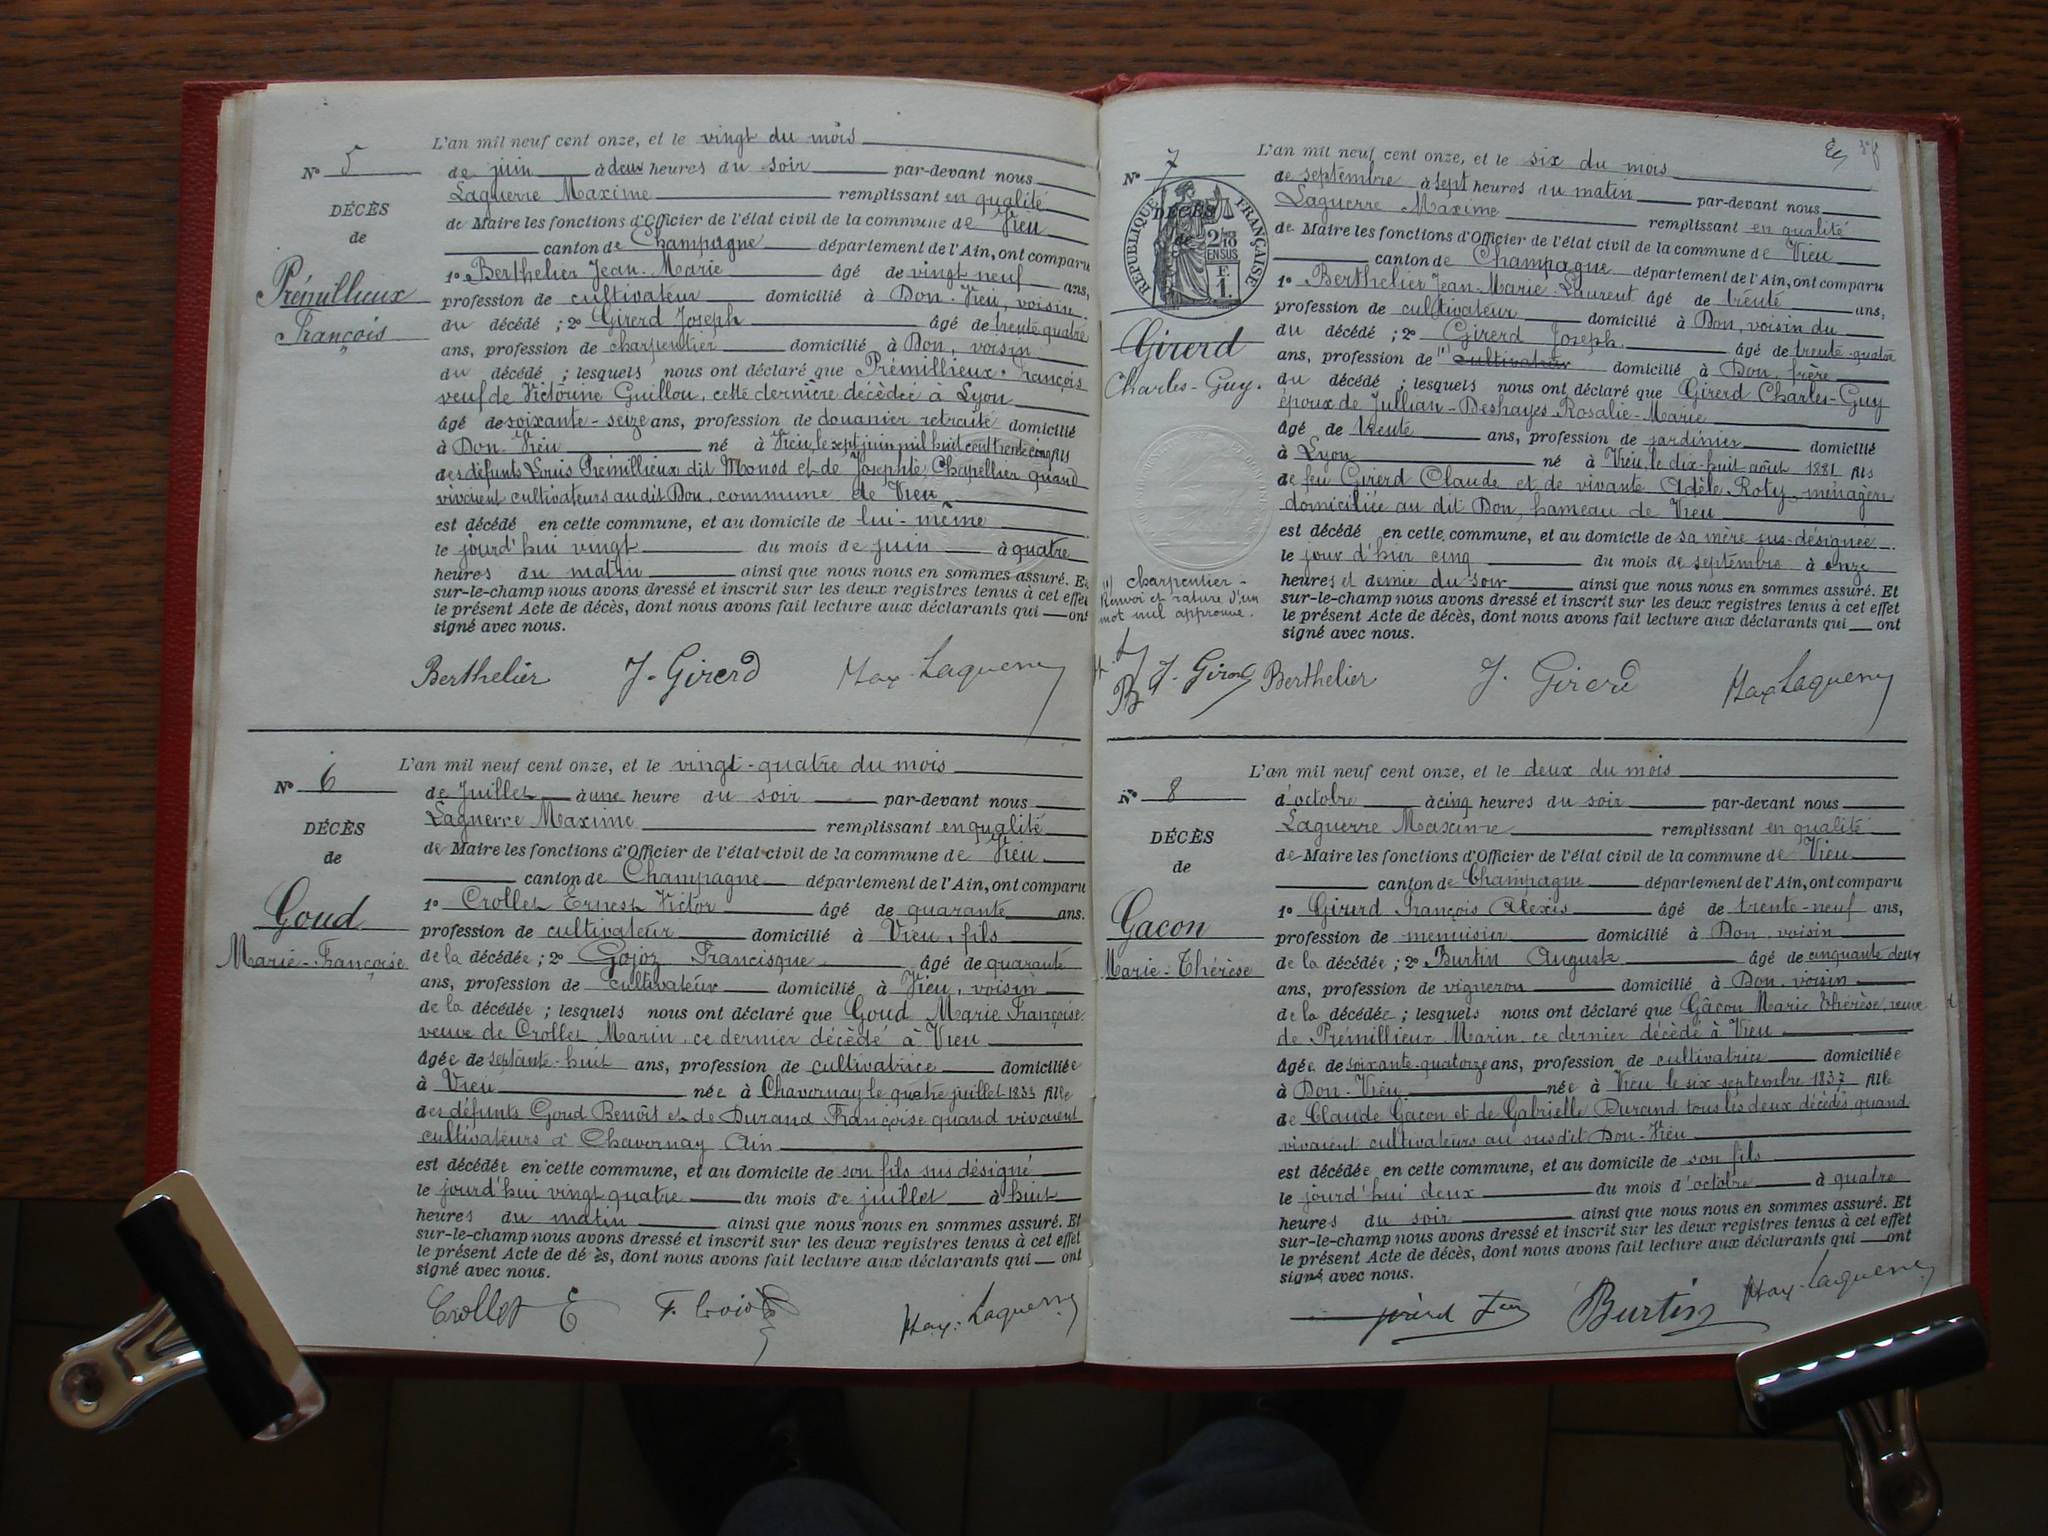 L'an mil neuf cent onze, et le vingt du mois
N° 5
de juin à deux heures du soir par-devant nous
Laguerre Maxime remplissant en qualité
DÉCÈS
de Maire les fonctions d'Officier de l'état civil de la commune de Vieu
de
canton de Champagne département de l'Ain, ont comparu
Prémillieux
1° Berthelier Jean-Marie âgé de vingt neuf ans,
profession de cultivateur domicilié à Don-Vieu, voisin
François
du décédé ; 2° Girerd Joseph âgé de trente quatre
ans, profession de charpentier domicilié à Don, voisin
du décédé ; lesquels nous ont déclaré que Prémillieux François
veuf de Victorine Guillou, cette dernière décédée à Lyon
âgé de soixante-seize ans, profession de douanier retraité domicilié
à Don-Vieu né à Vieu, le sept juin mil huit cent trente cinq fils
des défunts Louis Prémillieux dit Monod et de Josephte Chapellier quand
vivaient cultivateurs au dit Don, commune de Vieu
est décédé en cette commune, et au domicile de lui-même
le jourd'hui vingt du mois de juin à quatre
heures du matin ainsi que nous nous en sommes assuré. Et
sur-le-champ nous avons dressé et inscrit sur les deux registres tenus à cet effet
le présent Acte de décès, dont nous avons fait lecture aux déclarants qui ont
signé avec nous.
Berthelier J. Girerd Max Laguerre
L'an mil neuf cent onze, et le vingt-quatre du mois
N° 6
de Juillet à une heure du soir par-devant nous
Laguerre Maxime remplissant en qualité
DÉCÈS
de Maire les fonctions d'Officier de l'état civil de la commune de Vieu
de
canton de Champagne département de l'Ain, ont comparu
Goud
1° Crollet Ernest Victor âgé de quarante ans.
profession de cultivateur domicilié à Vieu, fils
Marie-Françoise
de la décédée ; 2° Gojoz Francisque âgé de quarante
ans, profession de cultivateur domicilié à Vieu, voisin
de la décédée ; lesquels nous ont déclaré que Goud Marie Françoise
veuve de Crollet Marin, ce dernier décédé à Vieu
âgée de septante-huit ans, profession de cultivatrice domiciliée
à Vieu née à Chavornay le quatre juillet 1833 fille
des défunts Goud Benoît et de Durand Françoise quand vivaient
cultivateurs à Chavornay Ain
est décédée en cette commune, et au domicile de son fils sus désigné
le jourd'hui vingt quatre du mois de juillet à huit
heures du matin ainsi que nous nous en sommes assuré. Et
sur-le-champ nous avons dressé et inscrit sur les deux registres tenus à cet effet
le présent Acte de décès, dont nous avons fait lecture aux déclarants qui ont
signé avec nous.
Crollet E Max. Laguerre
L'an mil neuf cent onze, et le six du mois
N° 7
de septembre à sept heures du matin par-devant nous
Laguerre Maxime remplissant en qualité
DÉCÈS
de
RÉPUBLIQUE FRANÇAISE
2/10 EN SUS
F. 1.
de Maire les fonctions d'Officier de l'état civil de la commune de Vieu
canton de Champagne département de l'Ain, ont comparu
1° Berthelier Jean-Marie-Laurent âgé de trente ans,
profession de cultivateur domicilié à Don, voisin du
Girerd
du décédé ; 2° Girerd Joseph âgé de trente-quatre
ans, profession de (1) cultivateur domicilié à Don, frère
Charles-Guy.
du décédé ; lesquels nous ont déclaré que Girerd Charles-Guy
époux de Jullian-Deshayes Rosalie-Marie
âgé de trente ans, profession de jardinier domicilié
à Lyon né à Vieu, le dix-huit août 1881 fils
de feu Girerd Claude et de vivante Adèle Roty, ménagère
domiciliée au dit Don, hameau de Vieu
est décédé en cette commune, et au domicile de sa mère sus-désignée
le jour d'hier cinq du mois de septembre à onze
heures et demie du soir ainsi que nous nous en sommes assuré. Et
sur-le-champ nous avons dressé et inscrit sur les deux registres tenus à cet effet
le présent Acte de décès, dont nous avons fait lecture aux déclarants qui ont
signé avec nous.
(1) charpentier -
Renvoi et rature d'un
mot nul approuvé.
J. Girerd Berthelier J. Girerd Max Laguerre
L'an mil neuf cent onze, et le deux du mois
N° 8
d'octobre à cinq heures du soir par-devant nous
Laguerre Maxime remplissant en qualité
DÉCÈS
de Maire les fonctions d'Officier de l'état civil de la commune de Vieu
de
canton de Champagne département de l'Ain, ont comparu
Gacon
1° Girerd François Alexis âgé de trente-neuf ans,
profession de menuisier domicilié à Don, voisin
Marie-Thérèse
de la décédée ; 2° Burtin Auguste âgé de cinquante deux
ans, profession de vigneron domicilié à Don, voisin
de la décédée ; lesquels nous ont déclaré que Gâcon Marie Thérèse, veuve
de Prémillieux Marin, ce dernier décédé à Vieu
âgée de soixante-quatorze ans, profession de cultivatrice domiciliée
à Don-Vieu née à Vieu le six septembre 1837 fille
de Claude Gacon et de Gabrielle Durand tous les deux décédés quand
vivaient cultivateurs au susdit Don-Vieu
est décédée en cette commune, et au domicile de son fils
le jourd'hui deux du mois d'octobre à quatre
heures du soir ainsi que nous nous en sommes assuré. Et
sur-le-champ nous avons dressé et inscrit sur les deux registres tenus à cet effet
le présent Acte de décès, dont nous avons fait lecture aux déclarants qui ont
signé avec nous.
Burtin Max. Laguerre